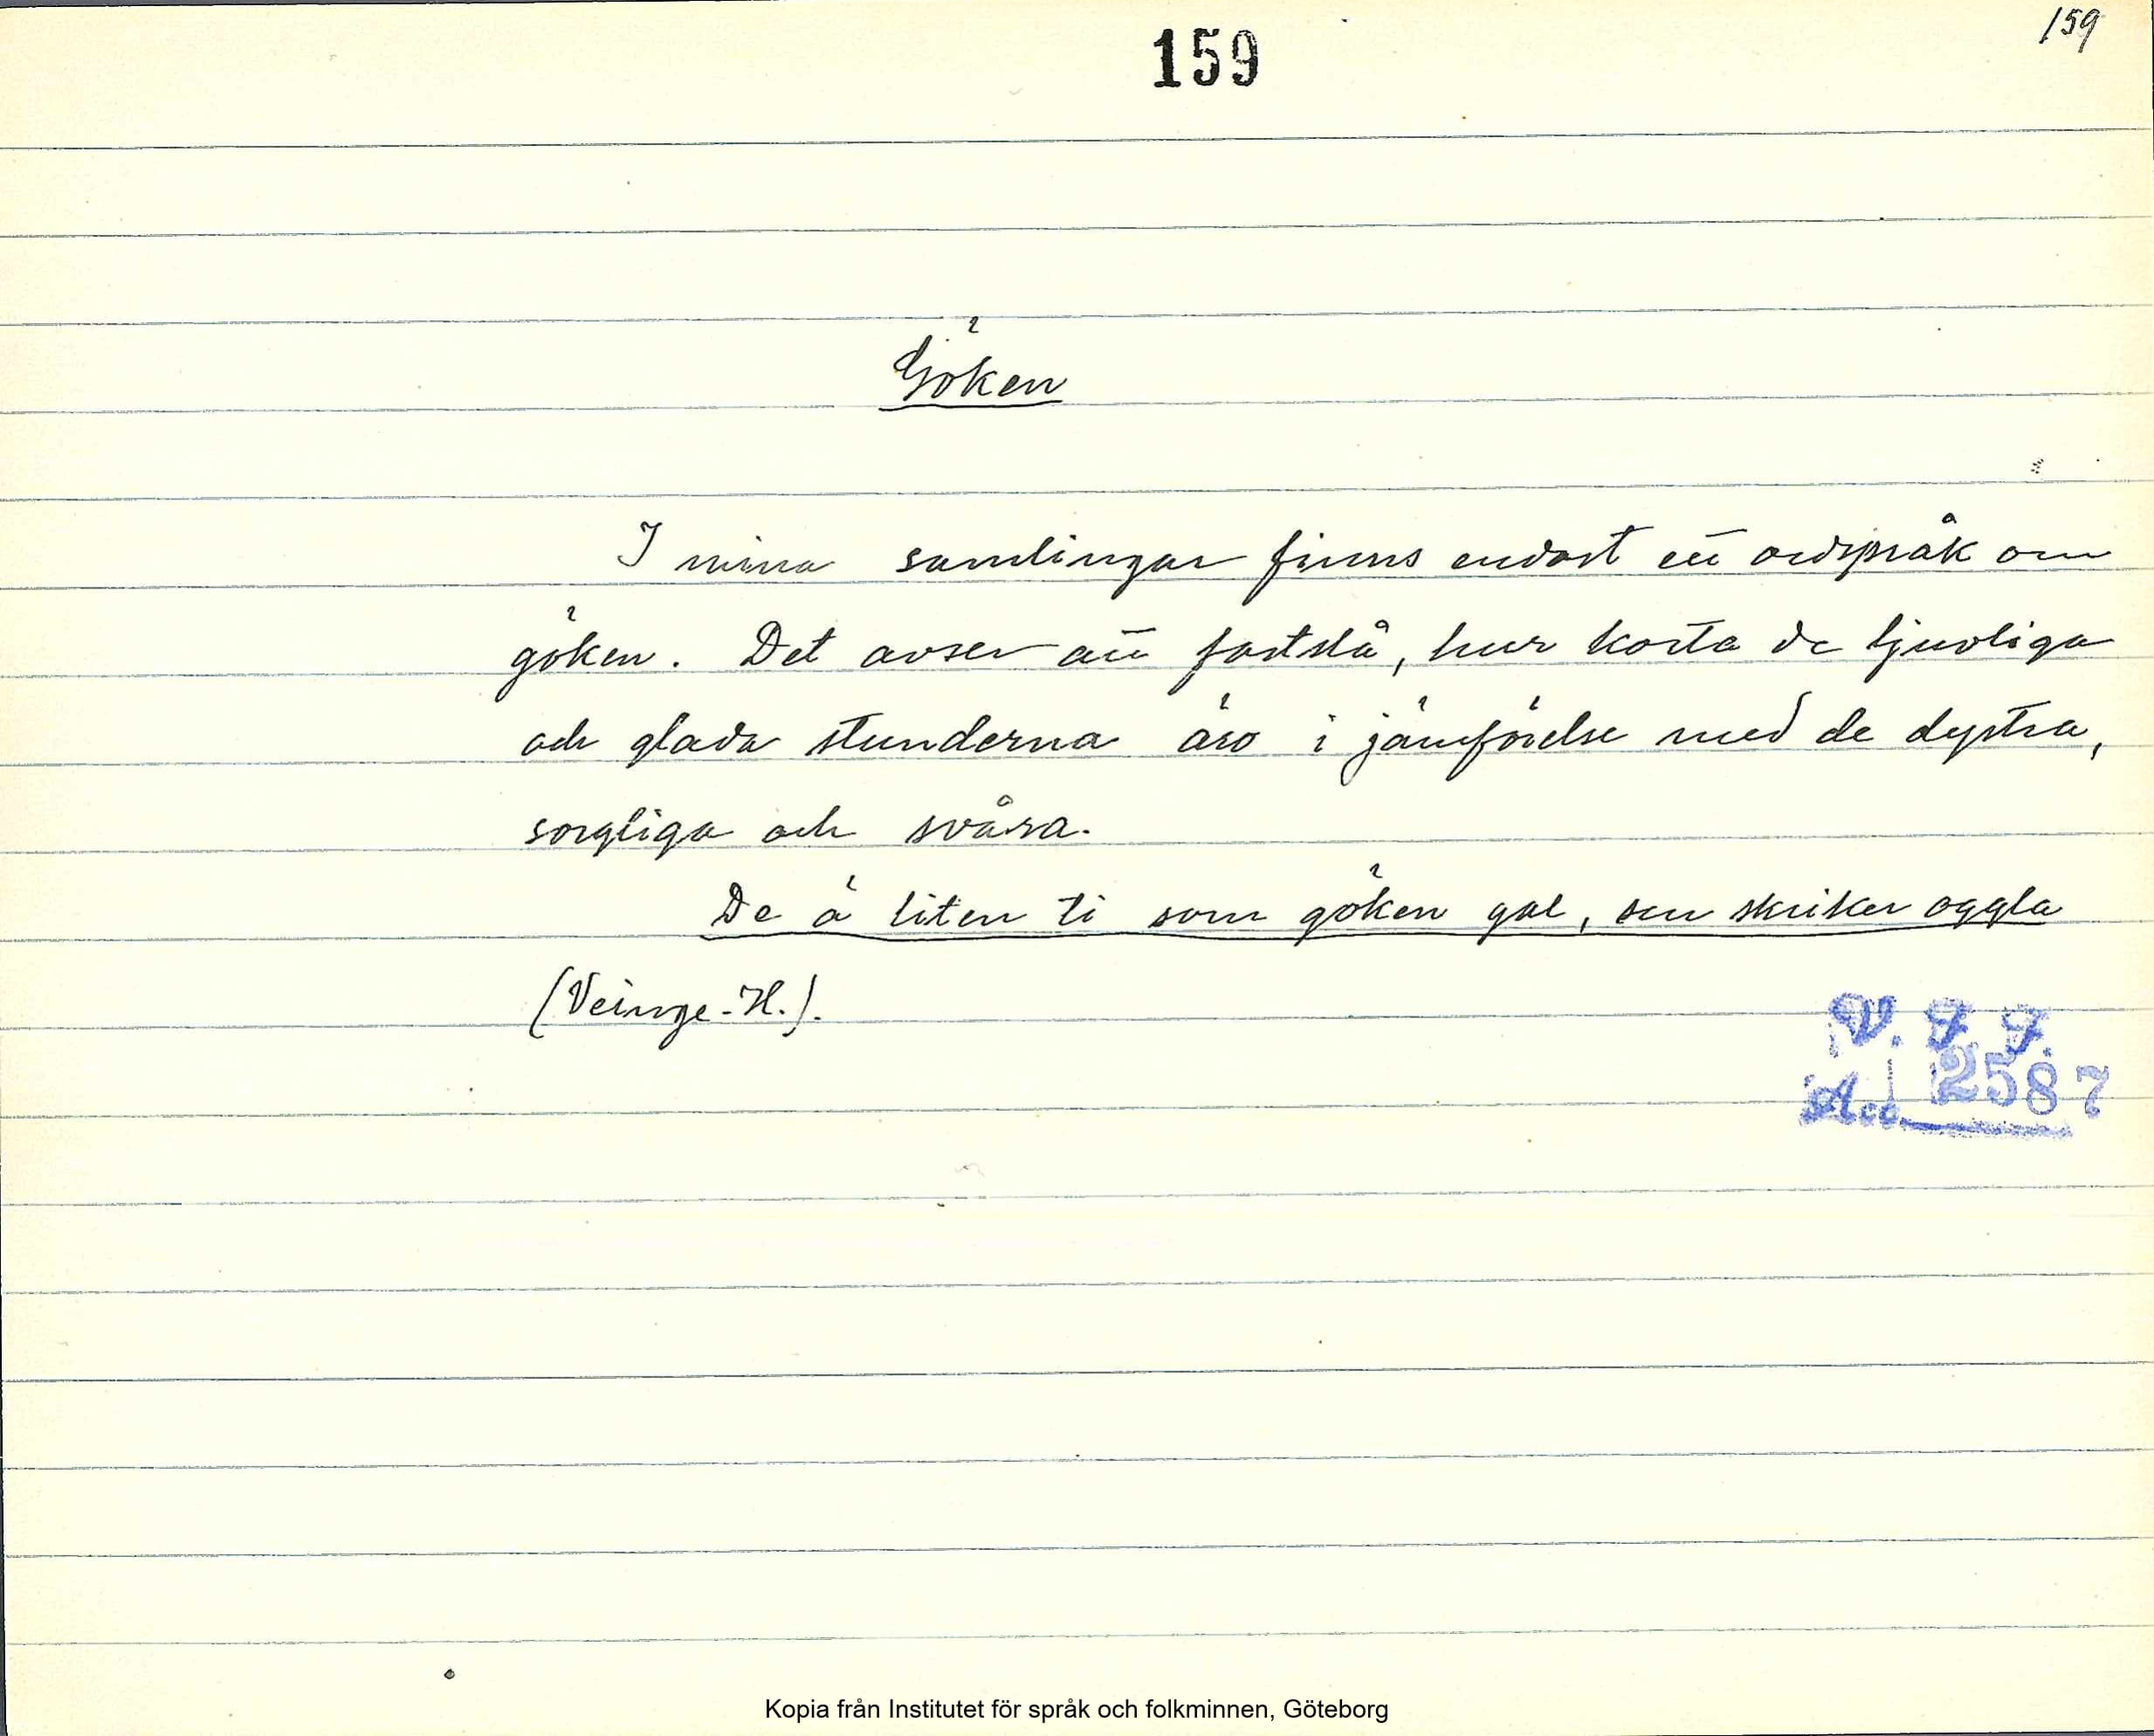 159
159
Göken
I mina samlingar finns endast ett ordspråk om
göken. Det avser att fastslå, hur korta de ljuvliga
och glada stunderna äro i jämförelse med de dystra,
sorgliga och svåra.
De ä liten ti som göken gal, sen skriker oggla
(Veinge-H.).
V. F. F.
Acc. 2587
Kopia från Institutet för språk och folkminnen, Göteborg